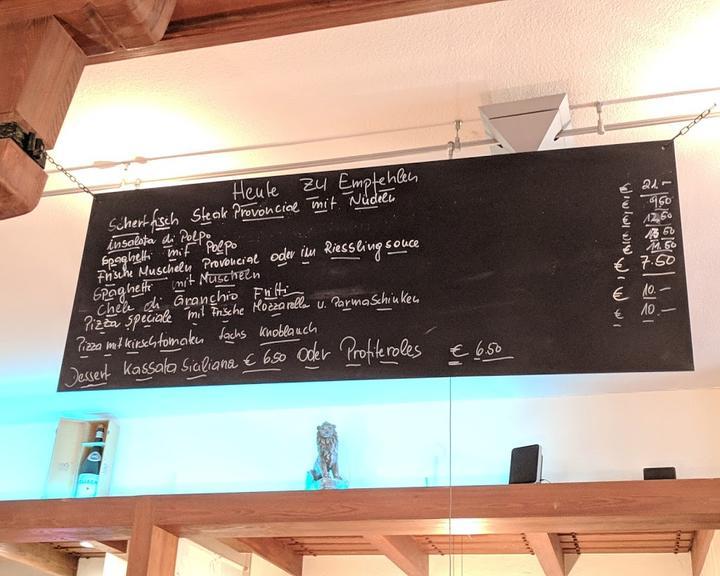 Heute zu Empfehlen
Schertfisch Steak Provoncial mit Nudeln € 21.-
Insalata di Polpo € 9,50
Spaghetti mit Polpo € 12,50
Frische Muscheln Provoncial oder im Riesslingsouce € 13.50
Spaghetti mit Muscheln € 11.50
Chele di Granchio Fritti € 7.50
Pizza Speciale mit Frische Mozzarella u. Parmaschinken € 10.-
Pizza mit kirschtomaten lachs knoblauch € 10.-
Dessert Kassata Siciliana € 6.50 oder Profiteroles € 6.50